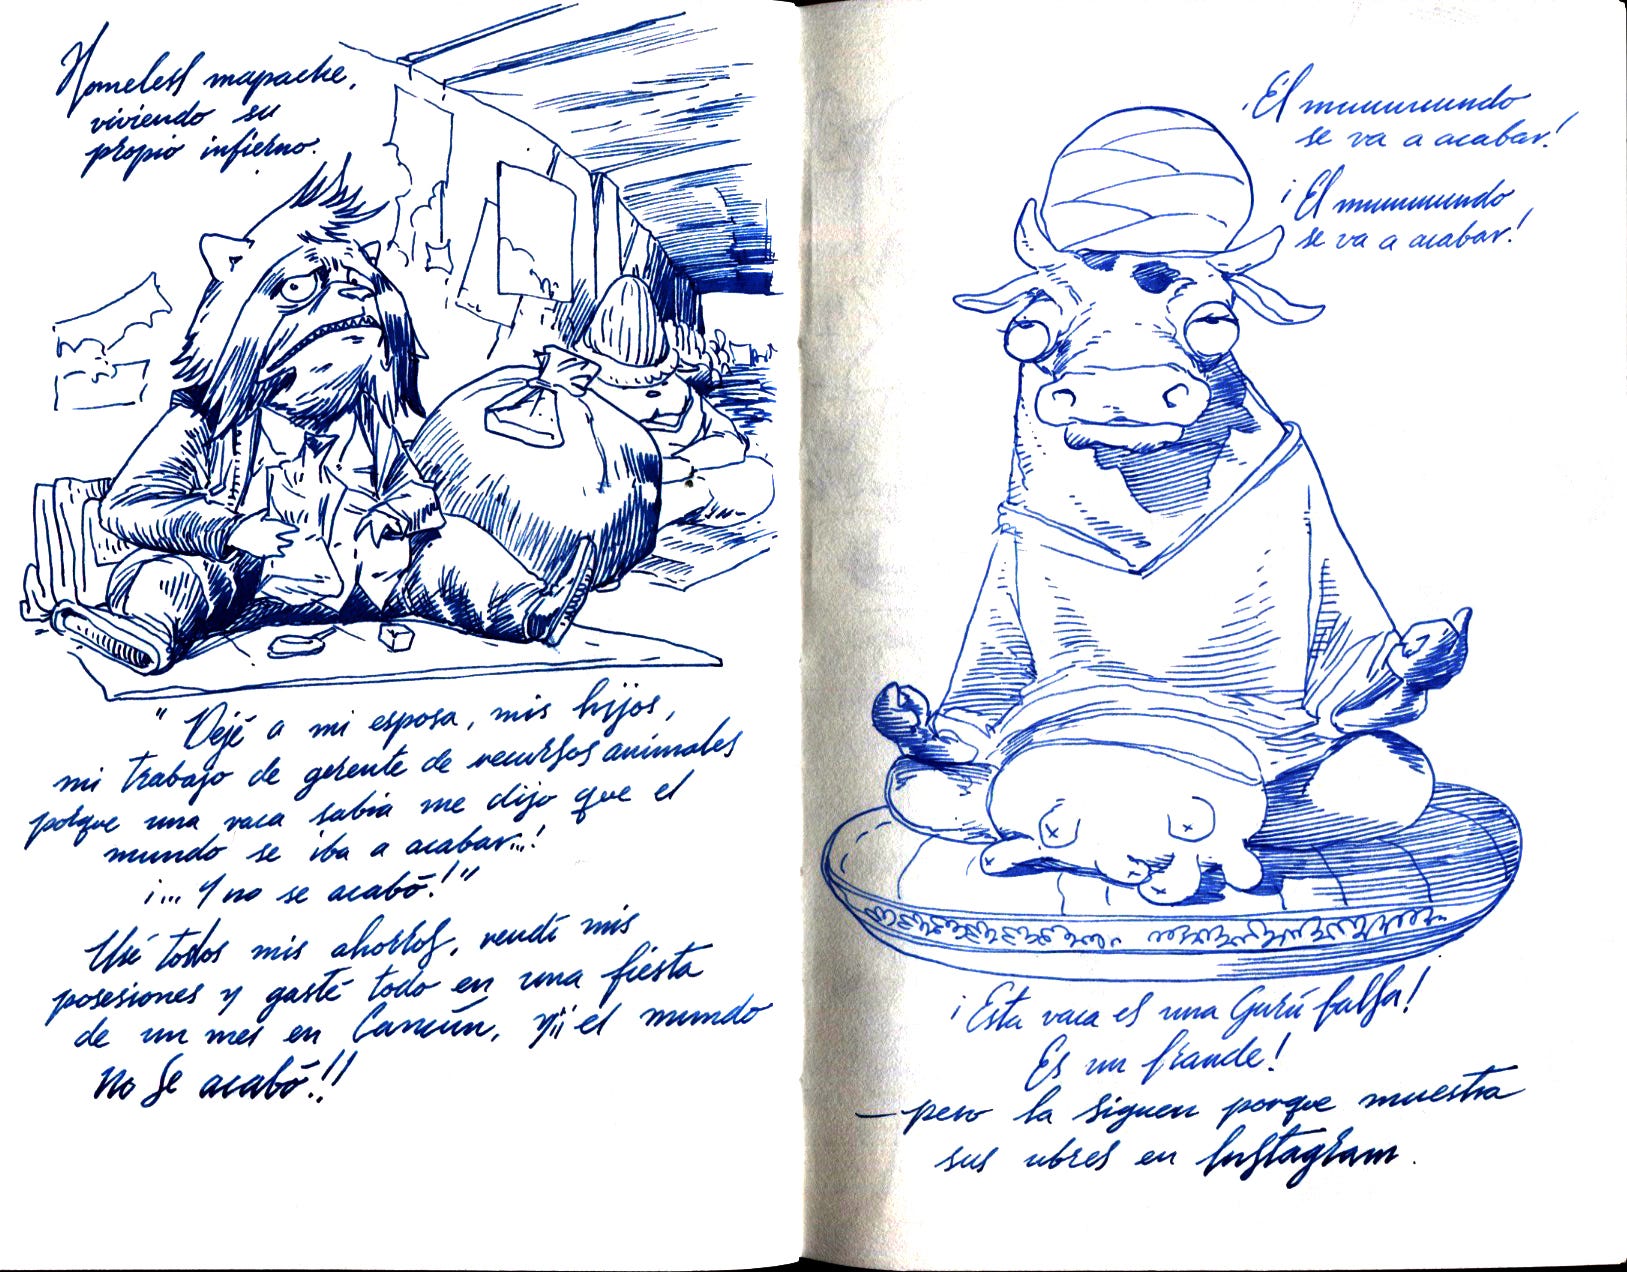 Homeless mapache,
viviendo su
propio infierno.
"Dejé a mi esposa, mis hijos,
mi trabajo de gerente de recursos animales
porque una vaca sabia me dijo que el
mundo se iba a acabar...!
¡... Y no se acabó!"
Usé todos mis ahorros, vendí mis
posesiones y gasté todo en una fiesta
de un mes en Cancún, y ¡¡ el mundo
No Se acabó!!
¡El muuuuuundo
se va a acabar!
¡El muuuuuundo
se va a acabar!
¡Esta vaca es una Gurú falsa!
Es un fraude!
—pero la siguen porque muestra
sus ubres en Instagram.